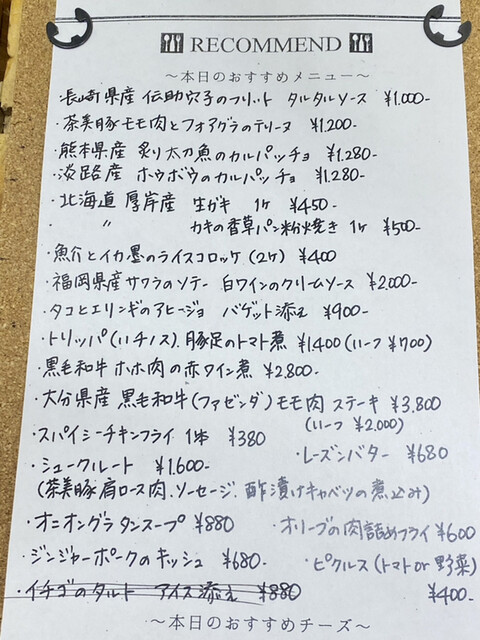 RECOMMEND
～本日のおすすめメニュー～
・長崎県産 伝助穴子のフリット タルタルソース ¥1,000-
・茶美豚モモ肉とフォアグラのテリーヌ ¥1,200-
・熊本県産 炙り太刀魚のカルパッチョ ¥1,280-
・淡路産 ホウボウのカルパッチョ ¥1,280-
・北海道 厚岸産 生ガキ 1ヶ ¥450-
・ 〃 カキの香草パン粉焼き 1ヶ ¥500-
・魚介とイカ墨のライスコロッケ(2ヶ) ¥400
・福岡県産サワラのソテー 白ワインのクリームソース ¥2,000-
・タコとエリンギのアヒージョ バゲット添え ¥900-
・トリッパ(ハチノス)、豚足のトマト煮 ¥1,400 (ハーフ ¥700)
・黒毛和牛 ホホ肉の赤ワイン煮 ¥2,800-
・大分県産 黒毛和牛(ファゼンダ)モモ肉 ステーキ ¥3,800
(ハーフ ¥2,000)
・スパイシーチキンフライ 1本 ¥380
・レーズンバター ¥680
・シュークルート ¥1,600-
(茶美豚肩ロース肉、ソーセージ、酢漬けキャベツの煮込み)
・オニオングラタンスープ ¥880
・オリーブの肉詰めフライ ¥600
・ジンジャーポークのキッシュ ¥680-
・ピクルス(トマト or 野菜)
¥400-
・イチゴのタルト アイス添え ¥880
～本日のおすすめチーズ～